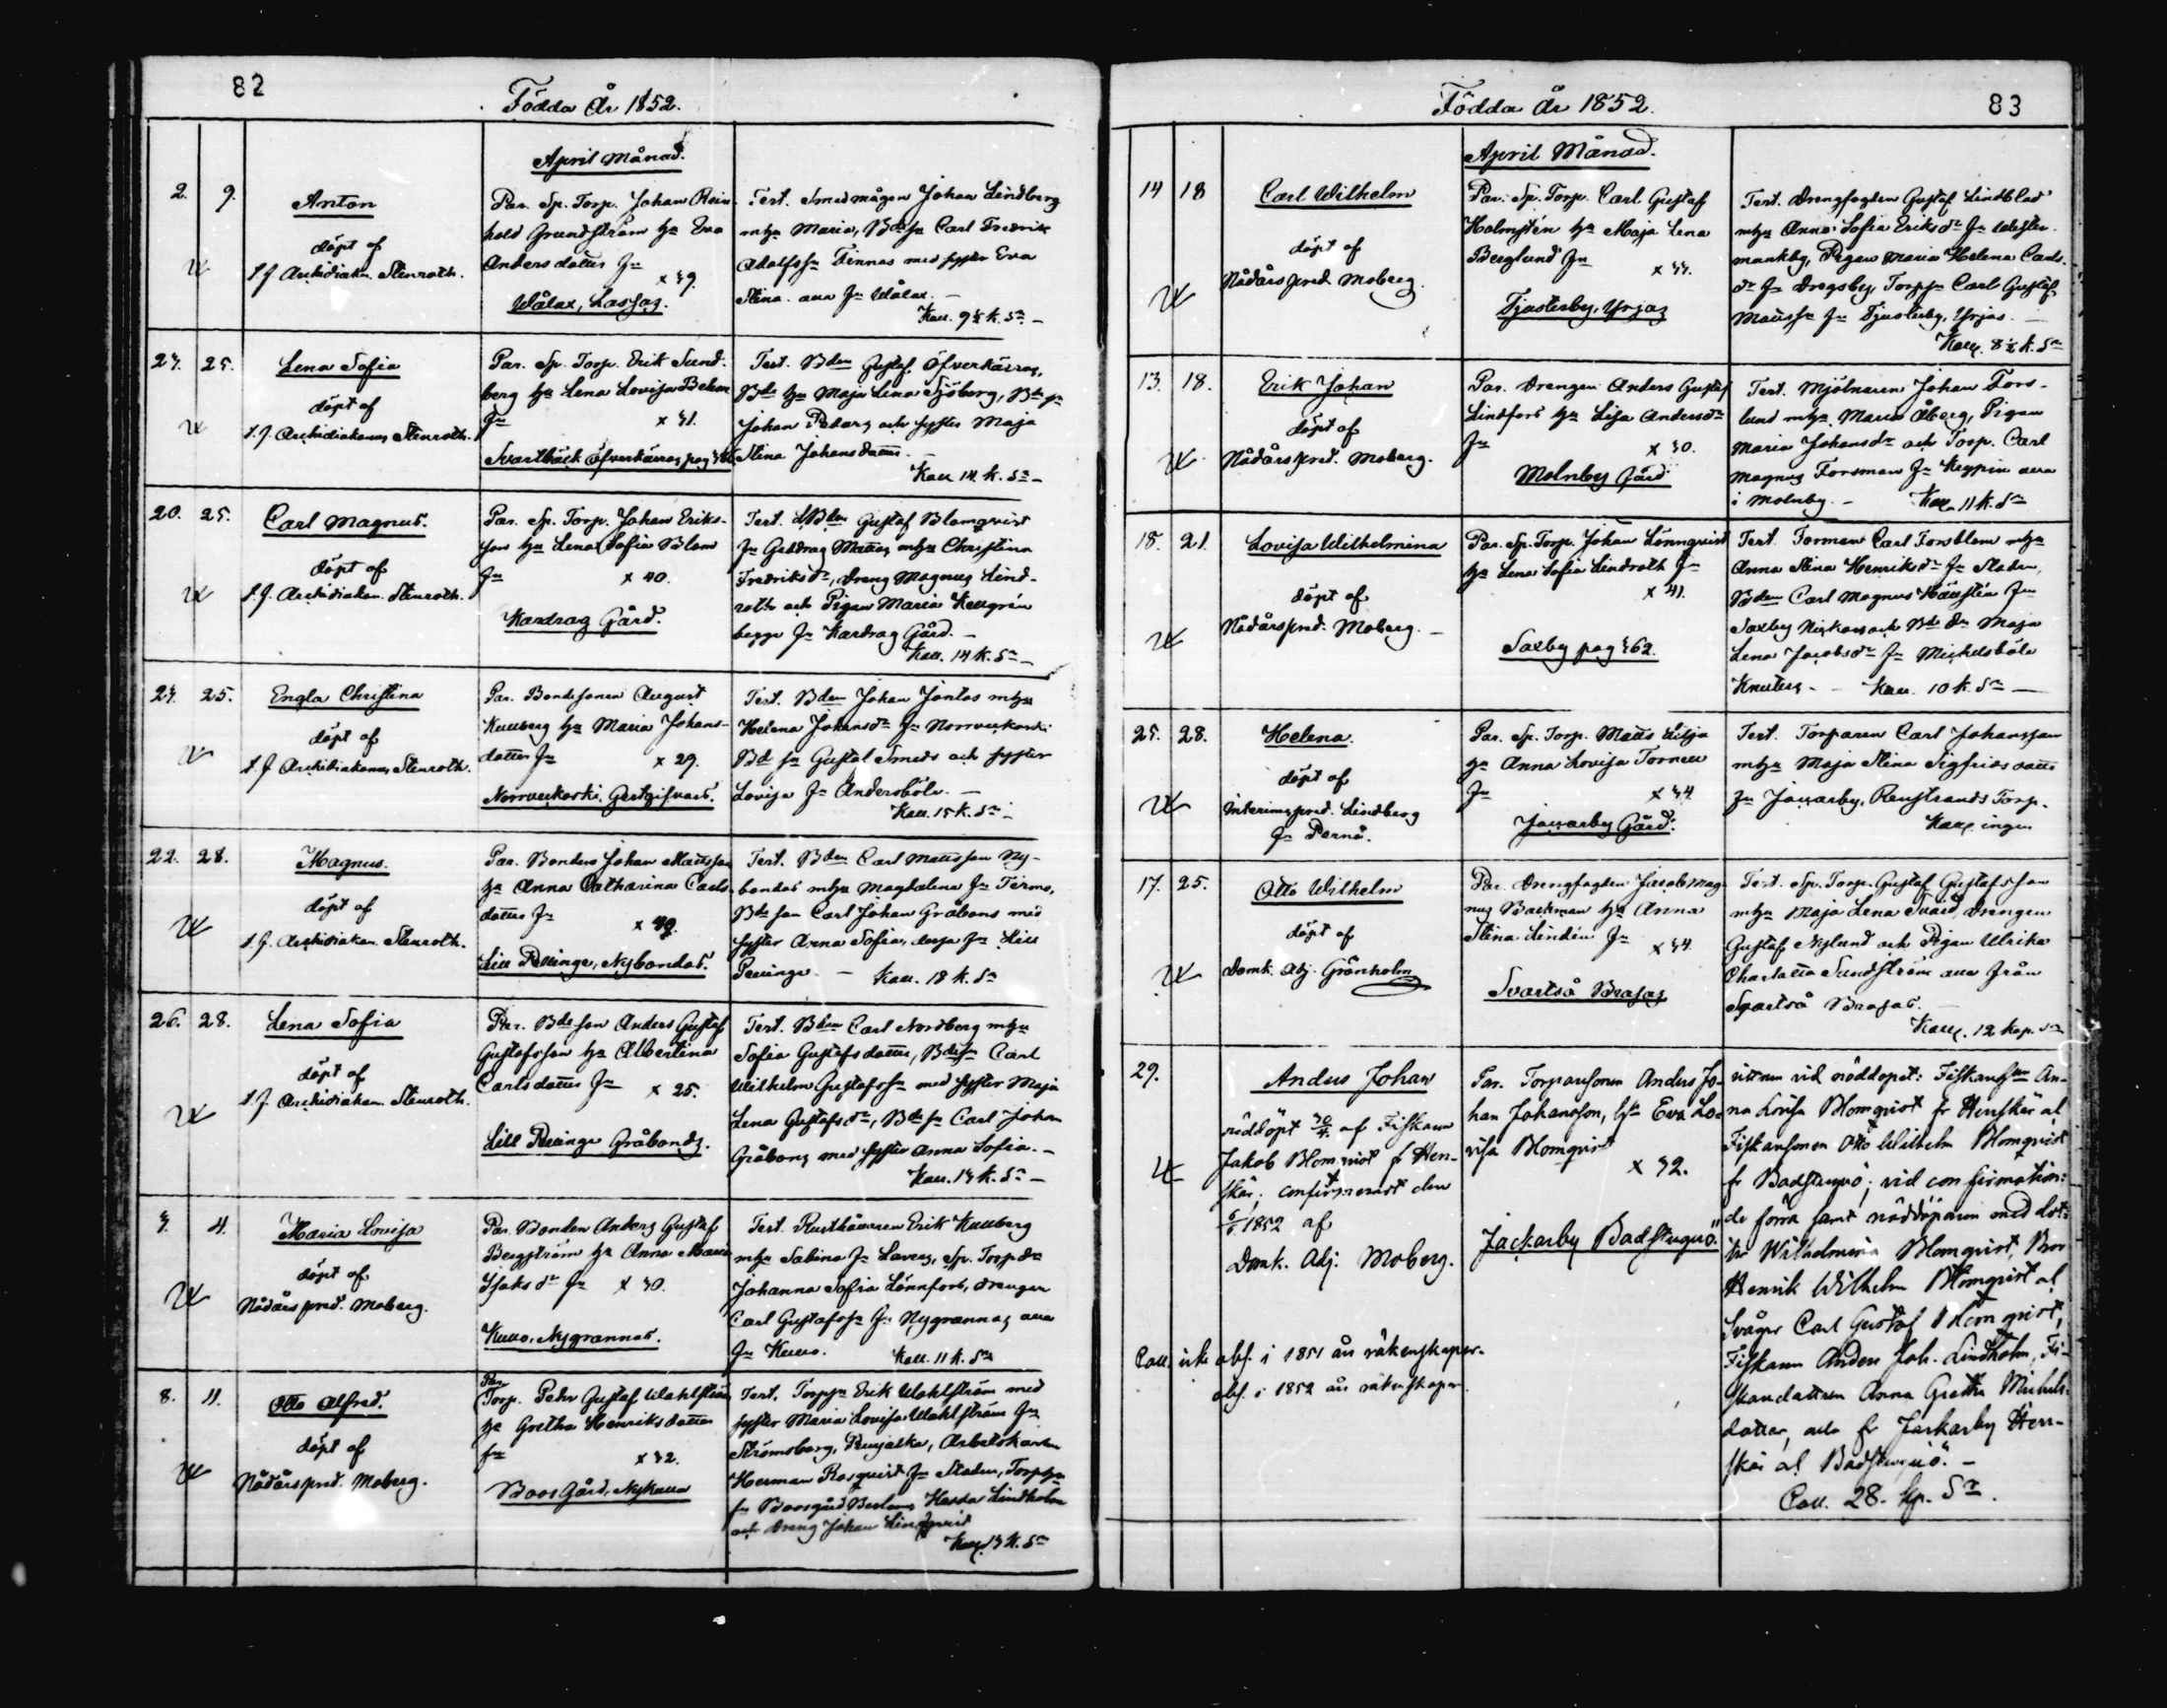 82
Födda År 1852.
April Månad.
2. 9.
Anton
döpt af
v. J. Archidiakon. Stenroth.
Par. Sp. Torp. Johan Rein-
hold Grundström hu Eva
Anders dotter fr.
x 39.
Wålax, Lassas.
Test. Smedmågen Johan Lindberg
m. hu Maria, Bdesn Carl Fredrik
Adolfssn Finnas med syster Eva
Stina alla fr. Wålax. –
Koll. 9½ k. Sr. –
23. 25.
Lena Sofia
döpt af
v. J. Archidiakonus Stenroth.
Par. Sp. Torp. Erik Sund-
berg hu Lena Lovisa Bekm
fr. x 31.
Svartbäck Öfverkärras pag
Test. Bden Gustaf Öfverkärras,
Bde hu Maja Lena Sjöberg, Bde sn
Johan och syster Maja
Stina Johans dotter. –
Koll 14 k. Sr –
20. 25.
Carl Magnus.
döpt af
v. J. Archidiakon. Stenroth.
Par. Sp. Torp. Johan Eriks-
son hu Lena Sofia Blom
fr. x 40.
Kardrag Gård.
Test. Bden Gustaf Blomqvist
fr. Geddrag Mattas m. hu Christina
Fredriksdr, Dreng Magnus Lind-
roth och Pigan Maria Kullgrén
begge fr. Kardrag Gård. –
Koll. 14 k. Sr –
23. 25.
Engla Christina
döpt af
v. J. Archidiakonus Stenroth.
Par. Bondesonen August
Kullberg hu Maria Johans-
dotter fr. x 29.
Norrveckoski Gertgifvars.
Test. Bden Johan Jontas m. hu
Helena Johansdr fr. Norrveckoski
Bde sn Gustaf Smeds och syster
Lovisa fr. Andersböle. –
Koll. 15 k. Sr –
22. 28.
Magnus.
döpt af
v. J. Archidiakon. Stenroth.
Par. Bonden Johan Mattsson
hu Anna Catharina Carls-
dotter fr.
Lill Pellinge, Nybondas.
Test. Bden Carl Mattsson Ny-
bondas m. hu Magdalena fr. Tirmo,
Bde son Carl Johan Grabons med
syster Anna Sofia, fr. Lill
Pellinge. – Koll. 18 k. Sr
26. 28.
Lena Sofia
döpt af
v. J. Archidiakon. Stenroth.
Par. Bde son Anders Gustaf
Gustafsson hu Albertina
Carls dotter fr. x 25.
Lill Pellinge Gråbonds.
Test. Bden Carl Nordberg m. hu
Sofia Gustafs dotter, Bdesn Carl
Wilhelm Gustafssn med syster Maja
Lena Gustafsdr, Bde sn Carl Johan
Gråbons med syster Anna Sofia. –
Koll. 13 k. Sr –
3. 4.
Maria Lovisa
döpt af
Nådårspred. Moberg.
Par. Bonden Anders Gustaf
Bergström hu Anna Maria
Isaks dr fr. x 30.
Kullo, Nygrannas.
Test. Rusthållaren Erik Kullberg
m. hu Sabina fr. Lavers, Sp. Torp dr
Johanna Sofia Lönnfors, Drengen
Carl Gustafssn fr. Nygrannas alla
fr. Kullo. Koll. 11 k. Sr
8. 11.
Otto Alfred.
döpt af
Nådårspred. Moberg.
Par.
Torp. Pehr Gustaf Wahlström
hu Gretha Henriksdotter
fr. x 32.
Boos Gård, Nykulla
Test. Torpsn Erik Wahlström med
syster Maria Lovisa Wahlström fr.
Strömsberg, Arbetskarlen
Herman Rosqvist fr. Staden,
fr. Boosgård Hedda Lindholm
och Dreng Johan
Koll. 13 k. Sr
83
Födda År 1852.
April Månad.
14 18
Carl Wilhelm
döpt af
Nådårspred. Moberg.
Par. Sp. Torp. Carl Gustaf
Holmstén hu Maja Lena
Berglund fr.
x 33.
Tjusterby, Yrjas
Test. Drengfogden Gustaf Lindblad
m. hu Anna Sofia Eriksdr fr. Wester-
mankby, Pigan Maria Helena Carls-
dr fr. Drägsby, Torpsn Carl Gustaf
Mattssn fr. Tjusterby, Yrjas. –
Koll. 8½ k. Sr
13. 18.
Erik Johan
döpt af
Nådårspred. Moberg.
Par. Drengen Anders Gustaf
Lindfors hu Lisa Andersdr
fr. x 30.
Molnby Gård
Test. Mjölnaren Johan Fors-
lund m. hu Maria Åberg, Pigan
Maria Johansdr och Torp. Carl
Magnus Forsman fr. alla
i Molnby. – Koll. 11 k. Sr
18. 21.
Lovisa Wilhelmina
döpt af
Nådårspred. Moberg. –
Par. Sp. Torp. Johan Lönnqvist
hu Lena Sofia Lindroth fr.
x 41.
Saxby pag 362.
Test. Forman Carl Forsblom m. hu
Anna Stina Henriksdr fr. Staden,
Bden Carl Magnus fr.
Saxby och Bde dr Maja
Lena Jacobsdr fr. Mickelsböle
Knuters. – Koll. 10 k. Sr –
25. 28.
Helena.
döpt af
Interimspred. Lindberg
fr. Pernå.
Par. Sp. Torp. Matts Lilja
hu Anna Lovisa Tornell
fr. x 34
Jackarby Gård.
Test. Torparen Carl Johansson
m. hu Maja Stina Sigfridsdotter
fr. Jackarby, Renstrands Torp.
Koll. ingen
17. 25.
Otto Wilhelm
döpt af
Domk. Adj. Grönholm
Par. Drengfogden Jacob Mag-
nus Backman hu Anna
Stina Lindén fr. x 34
Svartså Brasas
Test. Sp. Torp. Gustaf Gustafsson
m. hu Maja Lena Svärd, Drengen
Gustaf Nylund och Pigan Ulrika
Charlotta Sundström alla från
Svartså Brasas. –
Koll. 12 kop. Sr
29.
Anders Johan
nöddöpt 30/4 af Fiskaren
Jakob Blomqvist fr Herr-
skär; confirmeradt den
6/6 1852 af
Domk. Adj. Moberg.
Par. Torparsonen Anders Jo-
han Johansson, hu Eva Lo-
visa Blomqvist
x 32.
Jackarby Badstuguö.
vittnen vid nöddopet: Fiskarhun An-
na Lovisa Blomqvist fr Herrskär ol
Fiskarsonen Otto Wilhelm Blomqvist
fr Badstuguö; vid confirmation:
de förra samt nöddöparen med dot-
ter Wilhelmina Blomqvist, Bror
Henrik Wilhelm Blomqvist ol
Svåger Carl Gustaf Blomqvist,
Fiskaren Anders Joh. Lindholm, Fi-
skardottren Anna Gretha Michels-
dotter, alla fr Jackarby Herr-
skär ol Badstuguö. –
Coll. 28. kp. Sr.
Coll. icke obs. i 1851 års räkenskaper.
obs. i 1852 års räkenskaper.